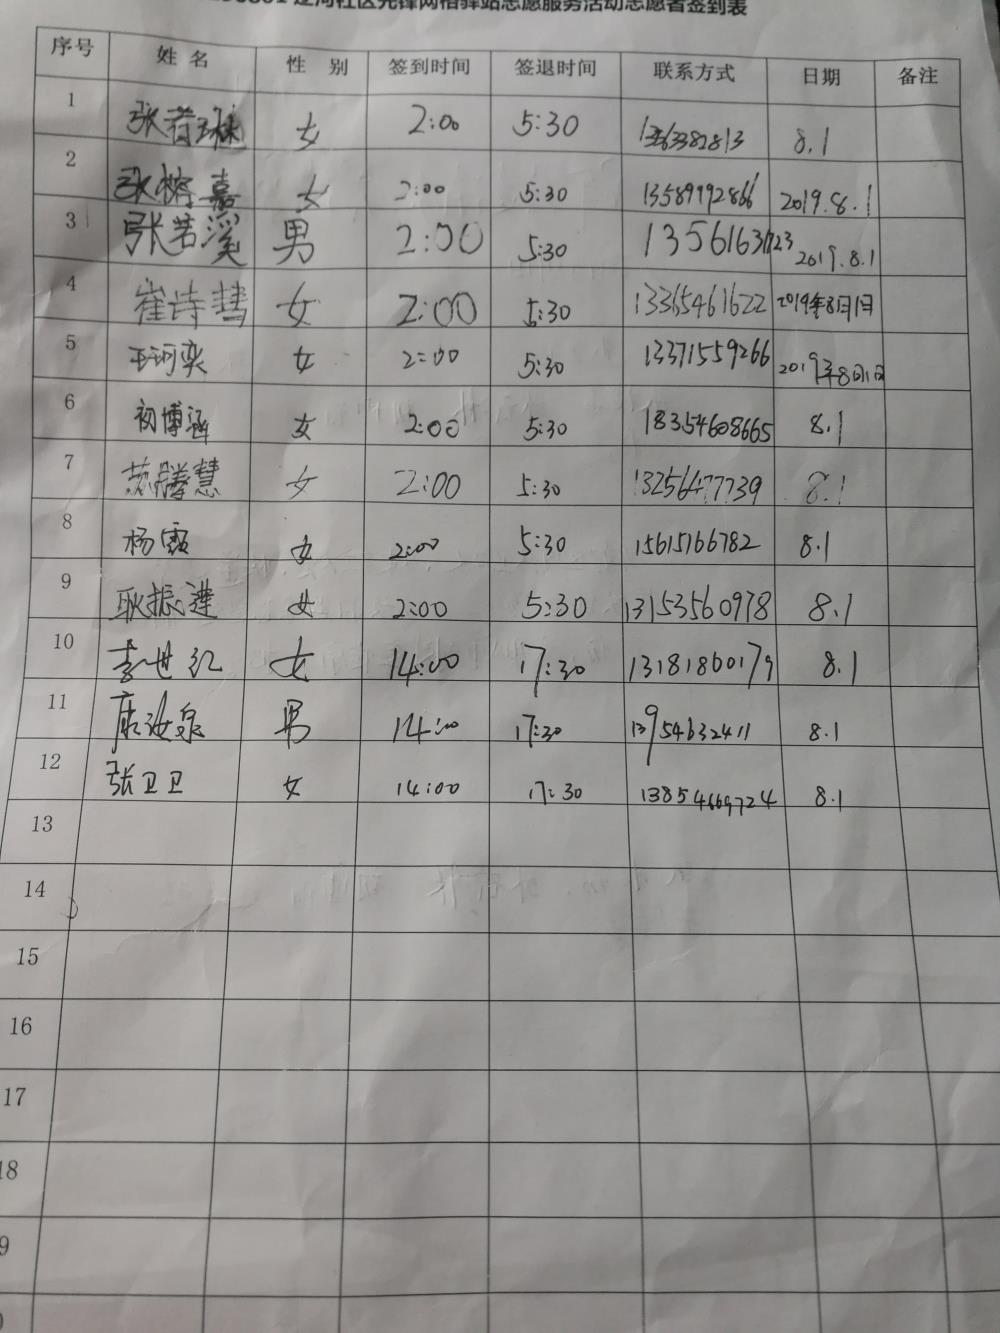 辽河社区先锋网格驿站志愿服务活动志愿者签到表
序号 姓 名 性 别 签到时间 签退时间 联系方式 日期 备注
1 张若琳 女 2:00 5:30 8.1
2 张榕嘉 女 2:00 5:30 13589992866 2019.8.1
3 张若溪 男 2:00 5:30 13561631723 2019.8.1
4 崔诗彗 女 2:00 5:30 13365461622 2019年8月1日
5 王珂奕 女 2:00 5:30 13371559266 2019年8月1日
6 初博涵 女 2:00 5:30 18354608665 8.1
7 慧 女 2:00 5:30 13256477739 8.1
8 杨霞 女 2:00 5:30 15615166782 8.1
9 耿振莲 女 2:00 5:30 13153560978 8.1
10 李世红 女 14:00 17:30 13181860179 8.1
11 唐汝泉 男 14:00 17:30 13954632411 8.1
12 张卫卫 女 14:00 17:30 13854669724 8.1
13
14
15
16
17
18
9